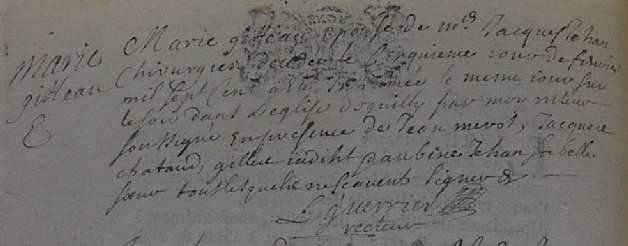 marie
gitteau
E
Marie gitteau epouse de me Jacques Jehan
Chirurgien decedee le cinquieme jour de fevrier
mil sept cent a ete inhumée le meme jour sur
le soir dans l'eglise d'oquilly par moy recteur
soussigne en presence de Jean merot, Jacque
chataud, gillee indiht paubine Jehan sa belle
sœur tous lesquels ne scavent signer &
L Guerrier
recteur